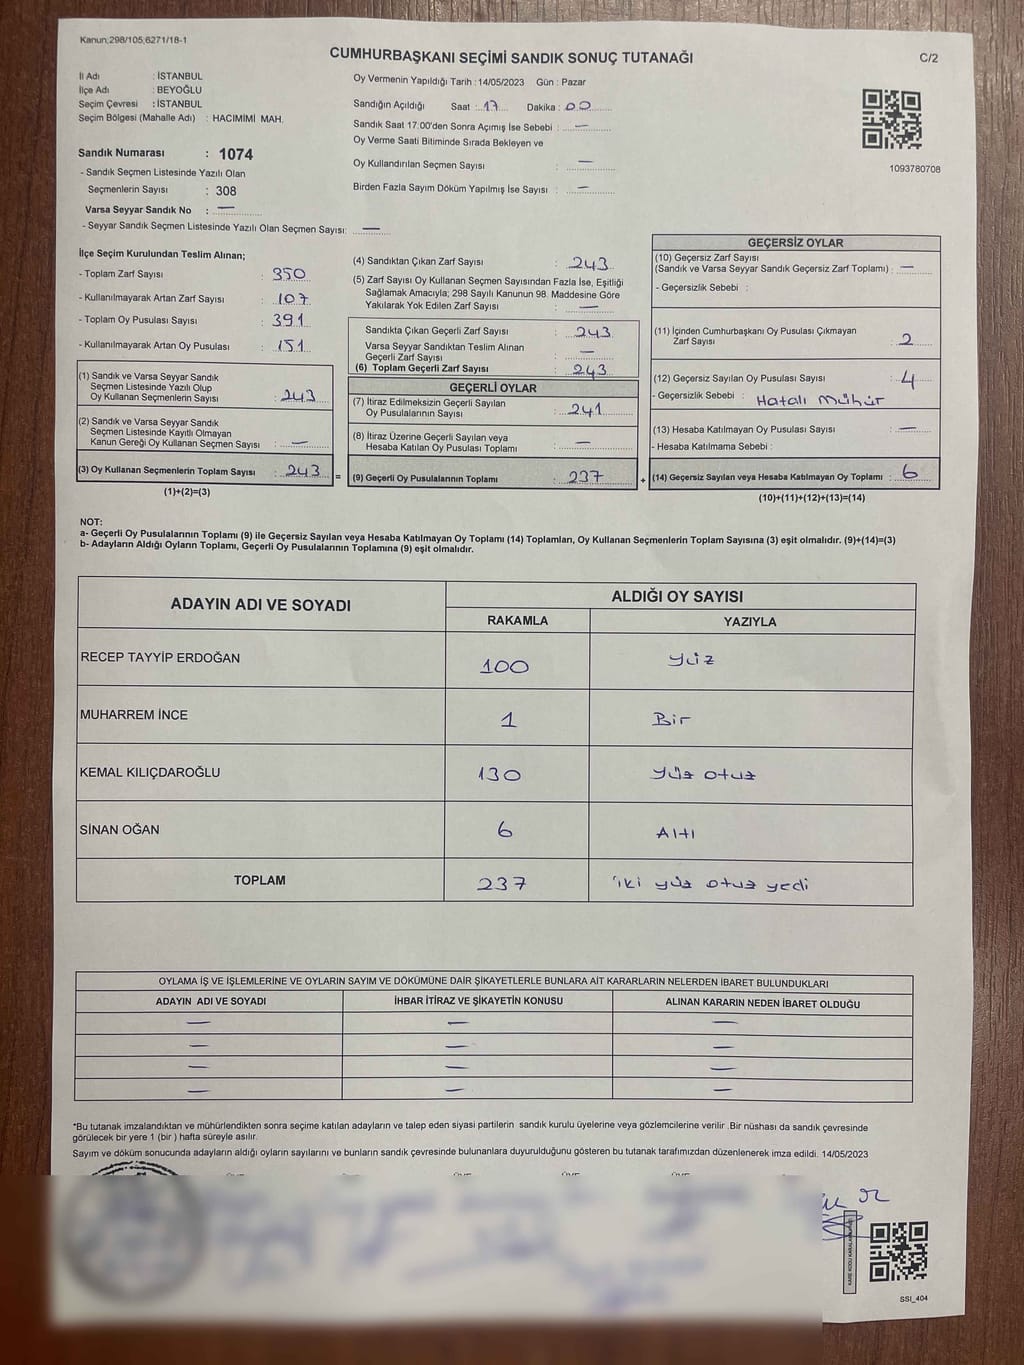 Kanun;298/105;6271/18-1
CUMHURBAŞKANI SEÇİMİ SANDIK SONUÇ TUTANAĞI
C/2
İl Adı : İSTANBUL
İlçe Adı : BEYOĞLU
Seçim Çevresi : İSTANBUL
Seçim Bölgesi (Mahalle Adı) : HACIMİMİ MAH.
Sandık Numarası : 1074
- Sandık Seçmen Listesinde Yazılı Olan
Seçmenlerin Sayısı : 308
Varsa Seyyar Sandık No : —
- Seyyar Sandık Seçmen Listesinde Yazılı Olan Seçmen Sayısı: —
Oy Vermenin Yapıldığı Tarih : 14/05/2023 Gün : Pazar
Sandığın Açıldığı Saat : 17 Dakika : 00
Sandık Saat 17:00'den Sonra Açımış İse Sebebi : —
Oy Verme Saati Bitiminde Sırada Bekleyen ve
Oy Kullandırılan Seçmen Sayısı : —
Birden Fazla Sayım Döküm Yapılmış İse Sayısı : —
1093780708
İlçe Seçim Kurulundan Teslim Alınan;
- Toplam Zarf Sayısı : 350
- Kullanılmayarak Artan Zarf Sayısı : 107
- Toplam Oy Pusulası Sayısı : 391
- Kullanılmayarak Artan Oy Pusulası : 151
(1) Sandık ve Varsa Seyyar Sandık
Seçmen Listesinde Yazılı Olup
Oy Kullanan Seçmenlerin Sayısı : 243
(2) Sandık ve Varsa Seyyar Sandık
Seçmen Listesinde Kayıtlı Olmayan
Kanun Gereği Oy Kullanan Seçmen Sayısı : —
(3) Oy Kullanan Seçmenlerin Toplam Sayısı : 243 =
(1)+(2)=(3)
(4) Sandıktan Çıkan Zarf Sayısı : 243
(5) Zarf Sayısı Oy Kullanan Seçmen Sayısından Fazla İse, Eşitliği
Sağlamak Amacıyla; 298 Sayılı Kanunun 98. Maddesine Göre
Yakılarak Yok Edilen Zarf Sayısı : —
Sandıkta Çıkan Geçerli Zarf Sayısı : 243
Varsa Seyyar Sandıktan Teslim Alınan
Geçerli Zarf Sayısı : —
(6) Toplam Geçerli Zarf Sayısı : 243
GEÇERLİ OYLAR
(7) İtiraz Edilmeksizin Geçerli Sayılan
Oy Pusulalarının Sayısı : 241
(8) İtiraz Üzerine Geçerli Sayılan veya
Hesaba Katılan Oy Pusulası Toplamı : —
(9) Geçerli Oy Pusulalarının Toplamı : 237 +
GEÇERSİZ OYLAR
(10) Geçersiz Zarf Sayısı
(Sandık ve Varsa Seyyar Sandık Geçersiz Zarf Toplamı) : —
- Geçersizlik Sebebi :
(11) İçinden Cumhurbaşkanı Oy Pusulası Çıkmayan
Zarf Sayısı : 2
(12) Geçersiz Sayılan Oy Pusulası Sayısı : 4
- Geçersizlik Sebebi : Hatalı Mühür
(13) Hesaba Katılmayan Oy Pusulası Sayısı : —
- Hesaba Katılmama Sebebi :
(14) Geçersiz Sayılan veya Hesaba Katılmayan Oy Toplamı : 6
(10)+(11)+(12)+(13)=(14)
NOT:
a- Geçerli Oy Pusulalarının Toplamı (9) ile Geçersiz Sayılan veya Hesaba Katılmayan Oy Toplamı (14) Toplamları, Oy Kullanan Seçmenlerin Toplam Sayısına (3) eşit olmalıdır. (9)+(14)=(3)
b- Adayların Aldığı Oyların Toplamı, Geçerli Oy Pusulalarının Toplamına (9) eşit olmalıdır.
ADAYIN ADI VE SOYADI
ALDIĞI OY SAYISI
RAKAMLA YAZIYLA
RECEP TAYYİP ERDOĞAN 100 Yüz
MUHARREM İNCE 1 Bir
KEMAL KILIÇDAROĞLU 130 Yüz otuz
SİNAN OĞAN 6 Altı
TOPLAM 237 iki yüz otuz yedi
OYLAMA İŞ VE İŞLEMLERİNE VE OYLARIN SAYIM VE DÖKÜMÜNE DAİR ŞİKAYETLERLE BUNLARA AİT KARARLARIN NELERDEN İBARET BULUNDUKLARI
ADAYIN ADI VE SOYADI İHBAR İTİRAZ VE ŞİKAYETİN KONUSU ALINAN KARARIN NEDEN İBARET OLDUĞU
— — —
— — —
— — —
— — —
*Bu tutanak imzalandıktan ve mühürlendikten sonra seçime katılan adayların ve talep eden siyasi partilerin sandık kurulu üyelerine veya gözlemcilerine verilir .Bir nüshası da sandık çevresinde
görülecek bir yere 1 (bir ) hafta süreyle asılır.
Sayım ve döküm sonucunda adayların aldığı oyların sayılarını ve bunların sandık çevresinde bulunanlara duyurulduğunu gösteren bu tutanak tarafımızdan düzenlenerek imza edildi. 14/05/2023
SSI_404